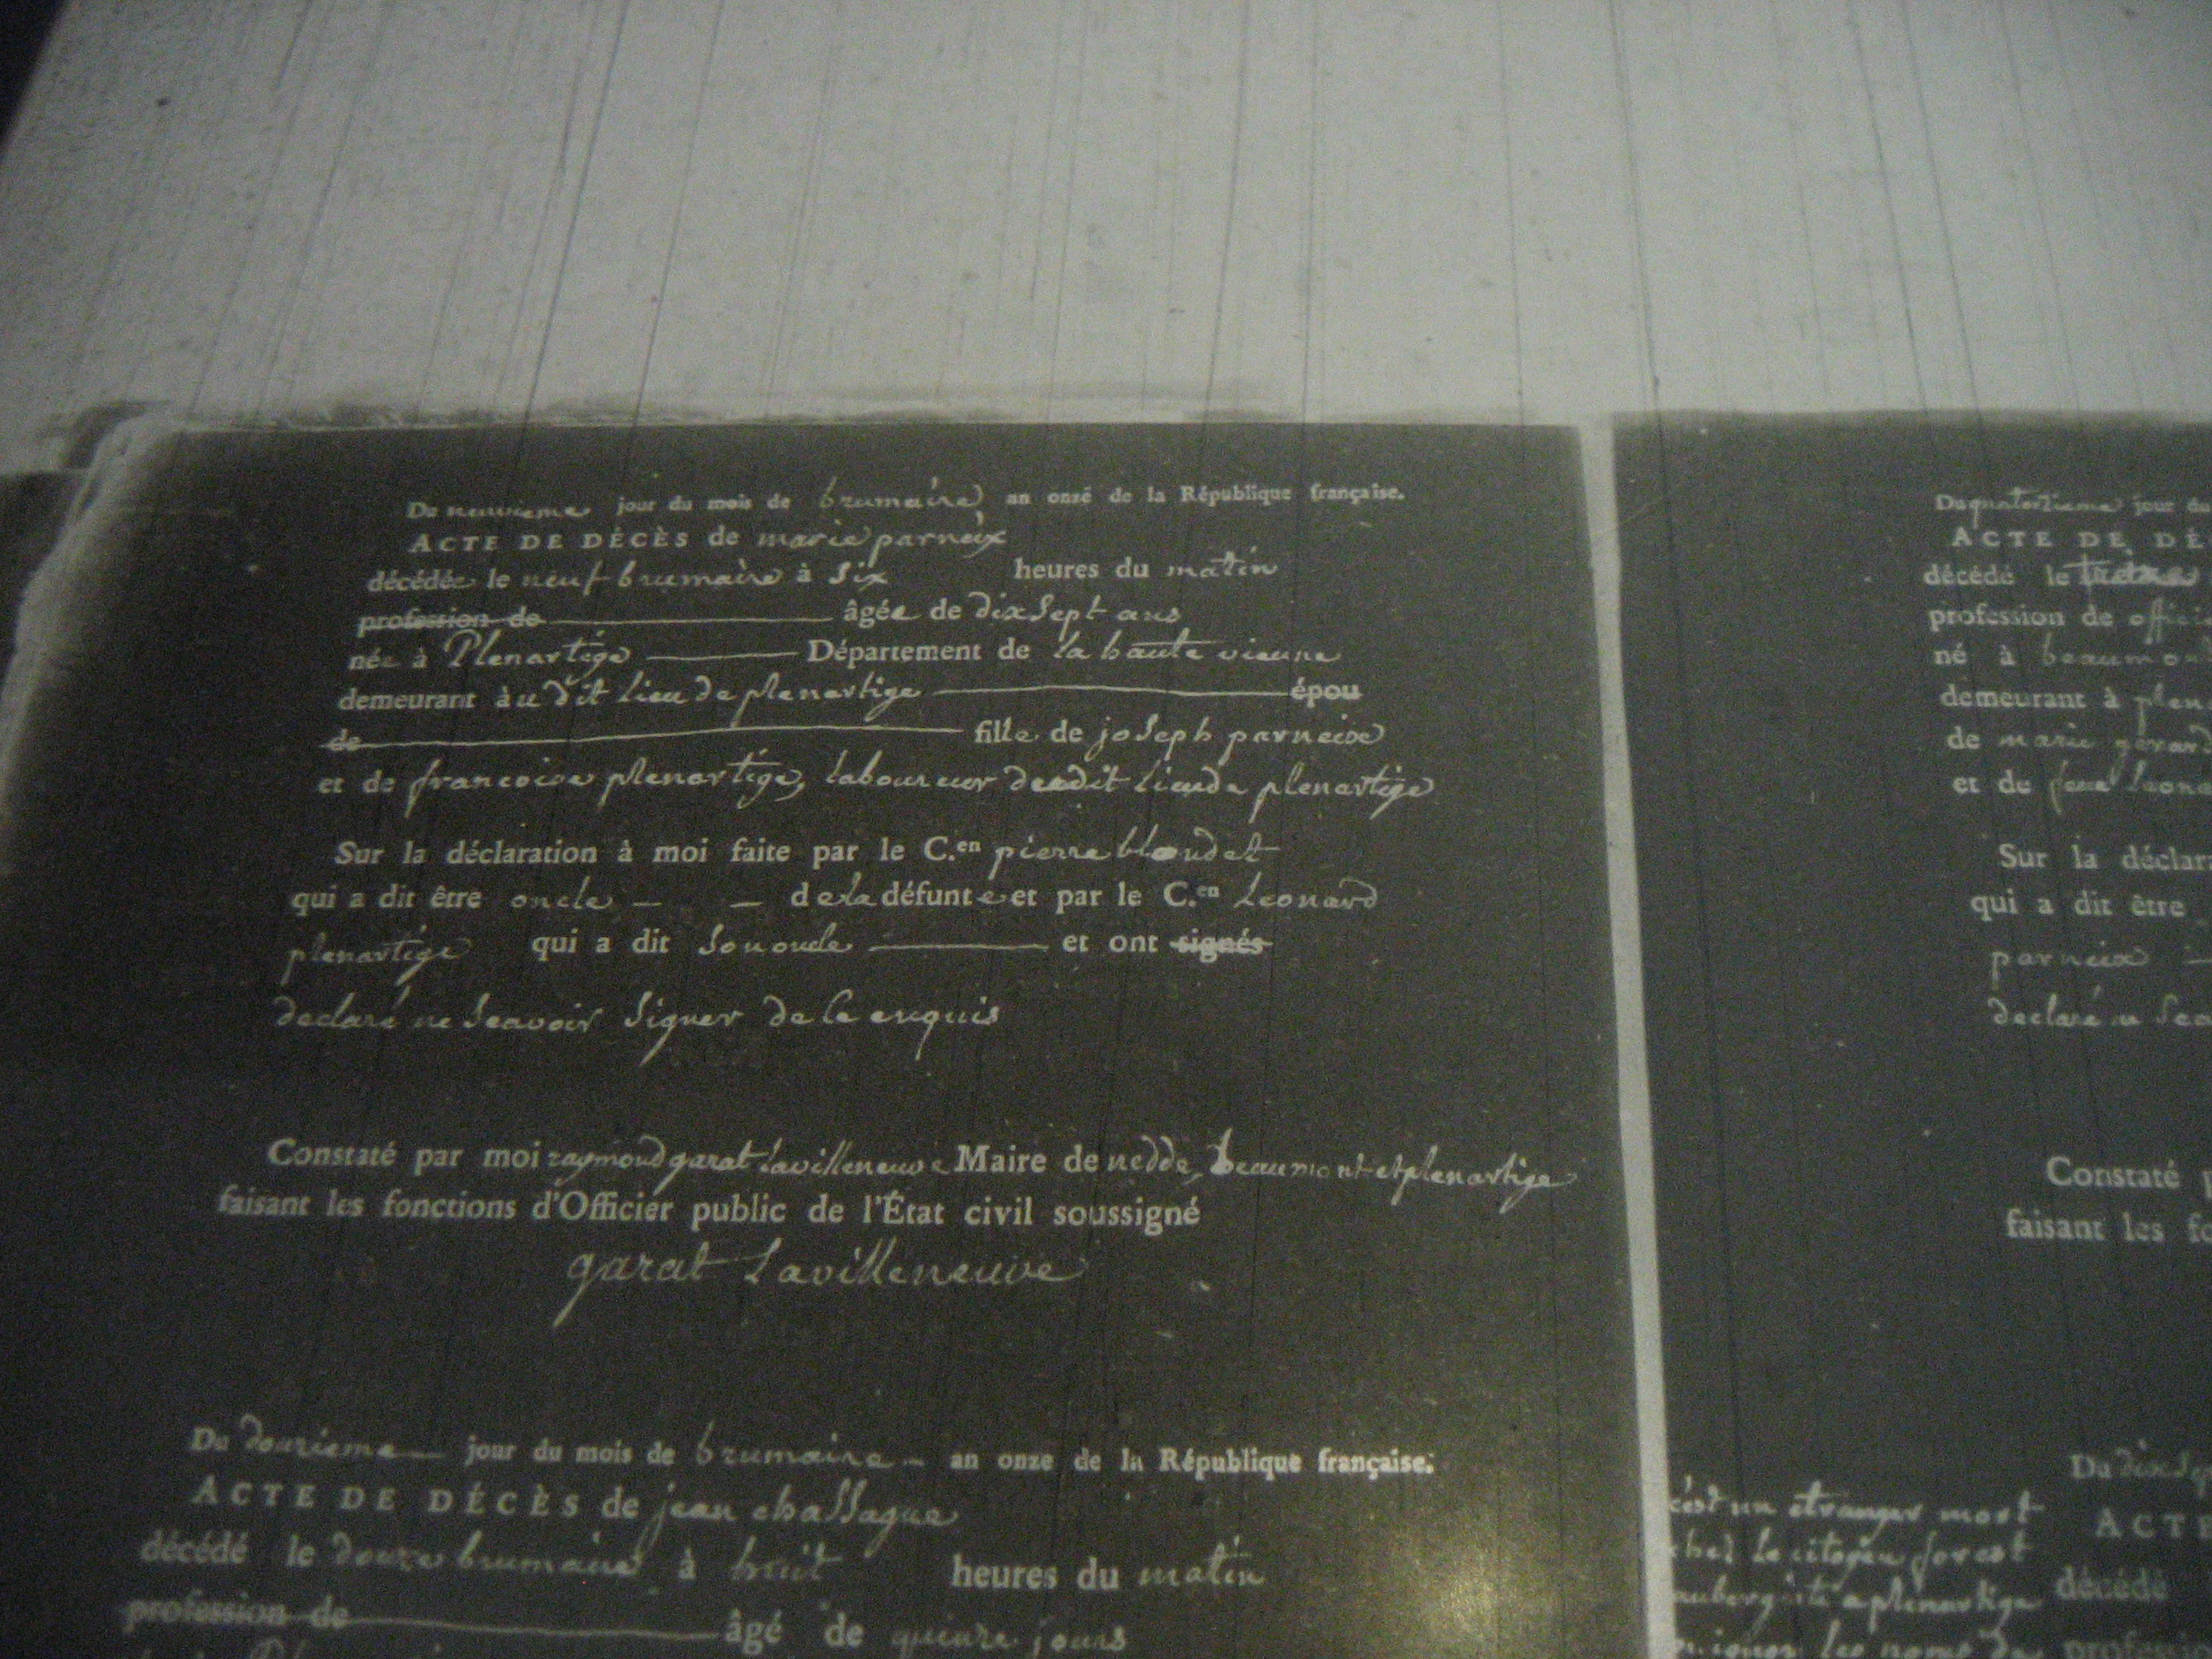 Du neuvieme jour du mois de brumaire an onze de la République française.
ACTE DE DÉCÈS de marie parneix
décédée le neuf brumaire à six heures du matin
profession de âgée de dix sept ans
née à Plenartige Département de la haute vienne
demeurant àu dit lieu de plenartige épou
de fille de joseph parneix
et de francoise plenartige, laboureur dudit lieu de plenartige
Sur la déclaration à moi faite par le C.en pierre bloudet
qui a dit être oncle — — de la défunte et par le C.en Leonard
plenartige qui a dit son oncle et ont signés
declaré ne Scavoir Signer de ce enquis
Constaté par moi raymond garat Lavilleneuve Maire de nedde, beaumont et plenartige
faisant les fonctions d'Officier public de l'État civil soussigné
garat Lavilleneuve
Du douzieme jour du mois de brumaire an onze de la République française.
ACTE DE DÉCÈS de jean chassagne
décédé le douze brumaire à huit heures du matin
profession de âgé de quinze jours
Du quatorzieme jour du
ACTE DE DÉ
décédé le
profession de offici
né à beaumon
demeurant à plen
de marie gerard
et de feue Leona
Sur la déclar
qui a dit être
parneix
declaré ne Sca
Constaté p
faisant les fo
Du
ACTE
décédé
profess
c'est un étranger mort
chez le citoyen forest
aubergiste a plenartige
les noms de